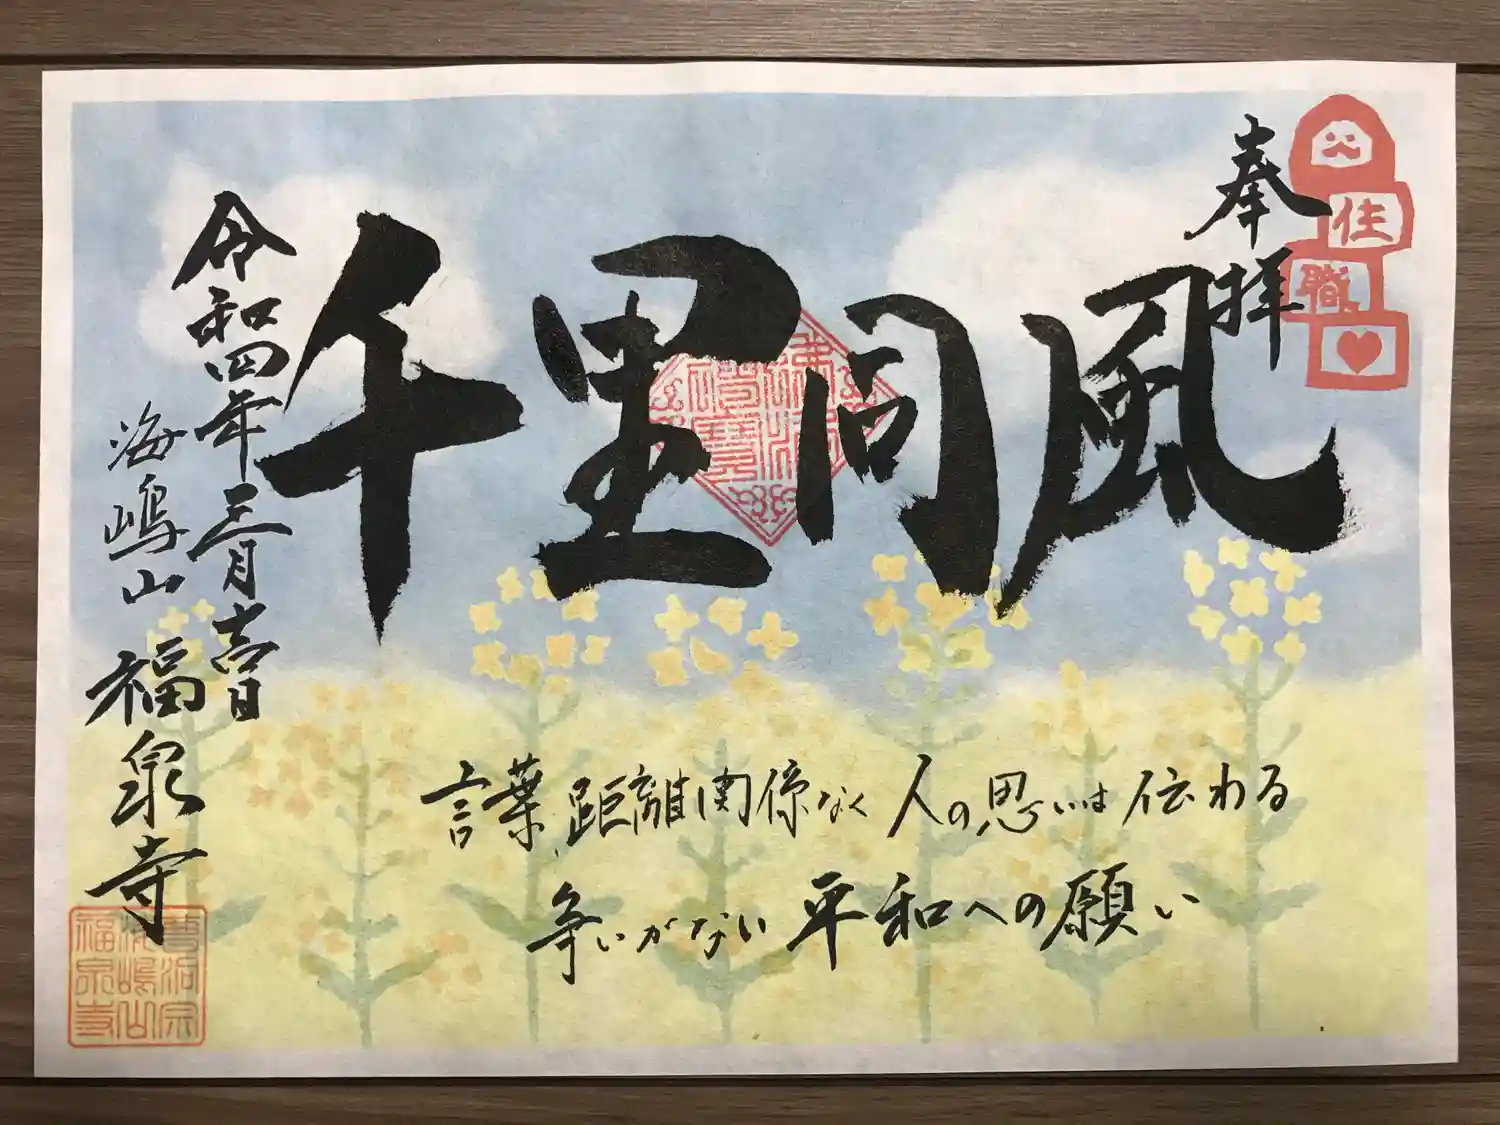 奉拝
住職
千里同風
佛法僧寶
令和四年三月吉日
海嶋山 福泉寺
言葉、距離関係なく 人の思いは伝わる
争いがない 平和への願い
曹洞宗
海嶋山
福泉寺